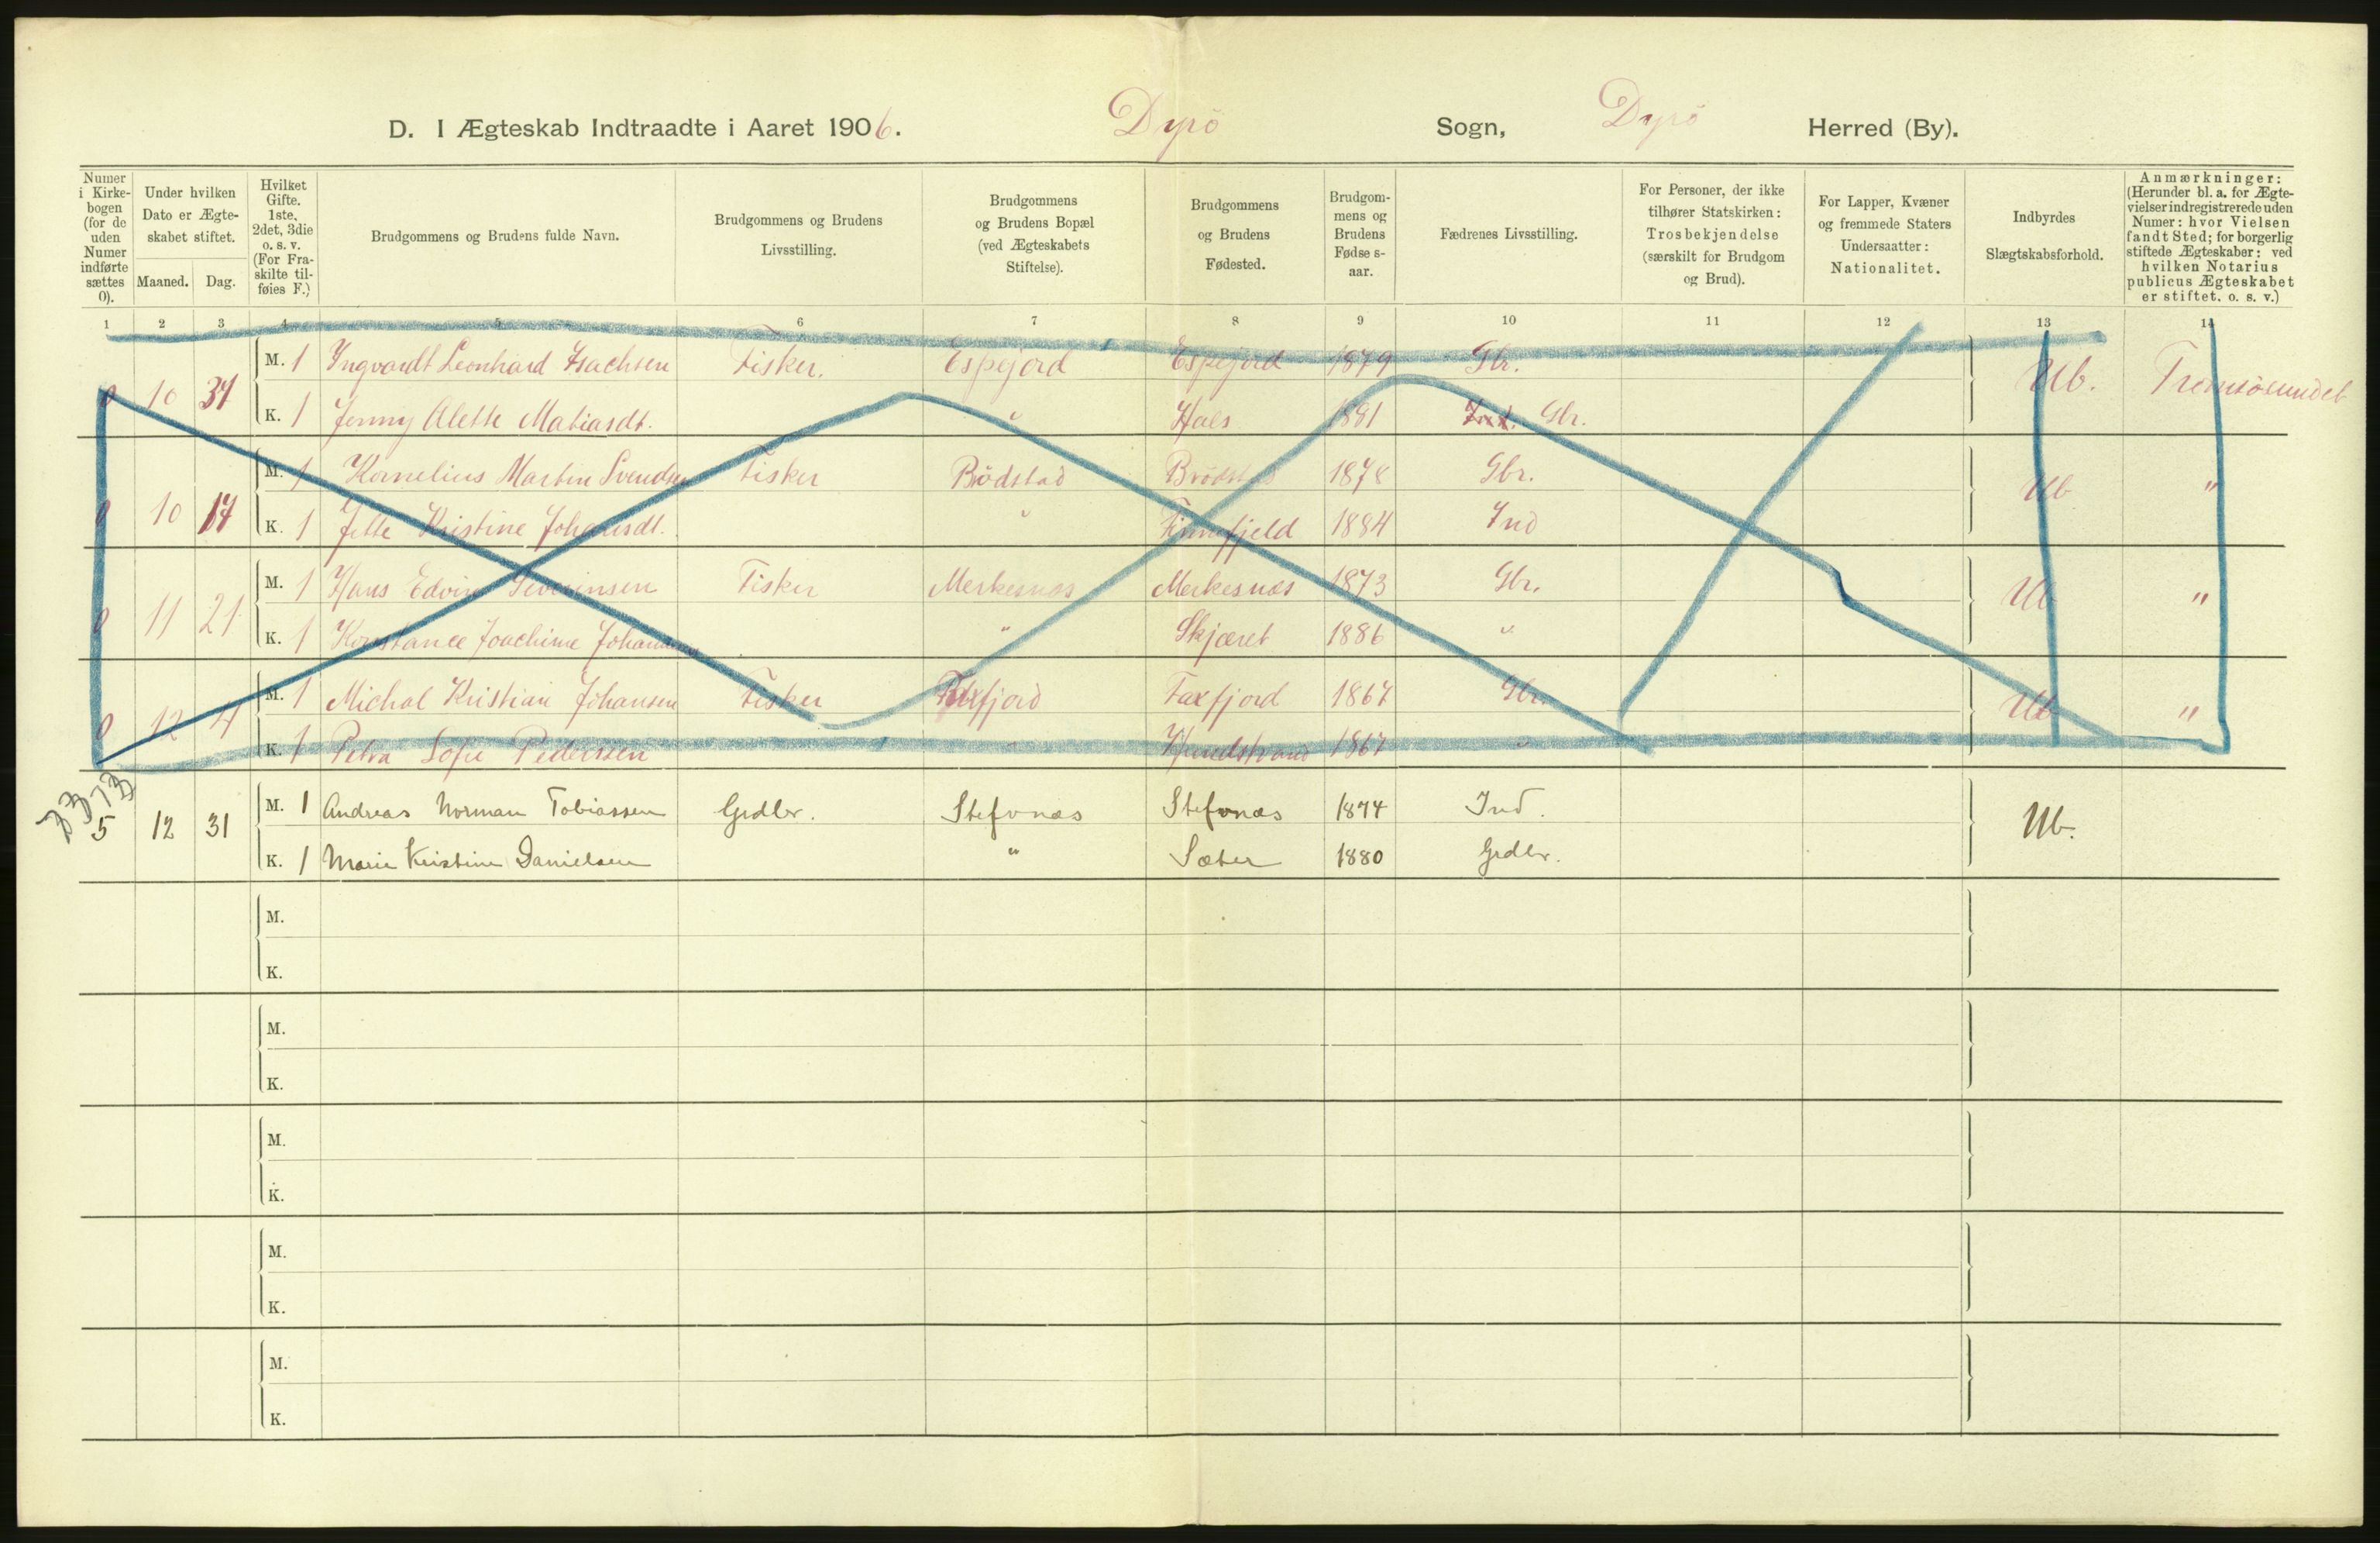 D. I Ægteskab Indtraadte i Aaret 1906. Dyrö Sogn, Dyrö Herred (By).
Numer i Kirkebogen (for de uden Numer indførte sættes 0).
Under hvilken Dato er Ægteskabet stiftet.
Maaned. Dag.
Hvilket Gifte. 1ste, 2det, 3die o. s. v. (For Fraskilte tilføies F.)
Brudgommens og Brudens fulde Navn.
Brudgommens og Brudens Livsstilling.
Brudgommens og Brudens Bopæl (ved Ægteskabets Stiftelse).
Brudgommens og Brudens Fødested.
Brudgommens og Brudens Fødselsaar.
Fædrenes Livsstilling.
For Personer, der ikke tilhører Statskirken: Trosbekjendelse (særskilt for Brudgom og Brud).
For Lapper, Kvæner og fremmede Staters Undersaatter: Nationalitet.
Indbyrdes Slægtskabsforhold.
Anmærkninger: (Herunder bl. a. for Ægtevielser indregistrerede uden Numer: hvor Vielsen fandt Sted; for borgerlig stiftede Ægteskaber: ved hvilken Notarius publicus Ægteskabet er stiftet. o. s. v.)
1 2 3 4 5 6 7 8 9 10 11 12 13 14
0 10 M. 1 Ingvardt Leonhard Isachsen Fisker. Espejord Espejord 1879 Gbr. Ub. Tromsösundet
K. 1 Jenny Alette Matiasdt. " Hals 1881 Ind. Gbr.
0 10 17 M. 1 Kornelius Martin Svendsen Fisker Brödstad 1878 Gbr. Ub "
K. 1 Jette Kristine Johansdt. " Finnfjeld 1884 Ind
0 11 21 M. 1 Hans Edvin Severinsen Fisker Merkesnæs Merkesnæs 1873 Gbr. Ub "
K. 1 Konstance Joachime " Skjæret 1886 "
0 12 4 M. 1 Michal Kristian Johansen Fisker Faxfjord Faxfjord 1867 Gbr. Ub "
K. 1 Petra Sofie Pederssen " 1867 "
5 12 31 M. 1 Andreas Norman Tobiassen Grdbr. Stefonæs Stefonæs 1874 Ind. Ub.
K. 1 Marie Kristine Danielsen " Sæter 1880 Grdbr.
M.
K.
M.
K.
M.
K.
M.
K.
M.
K.